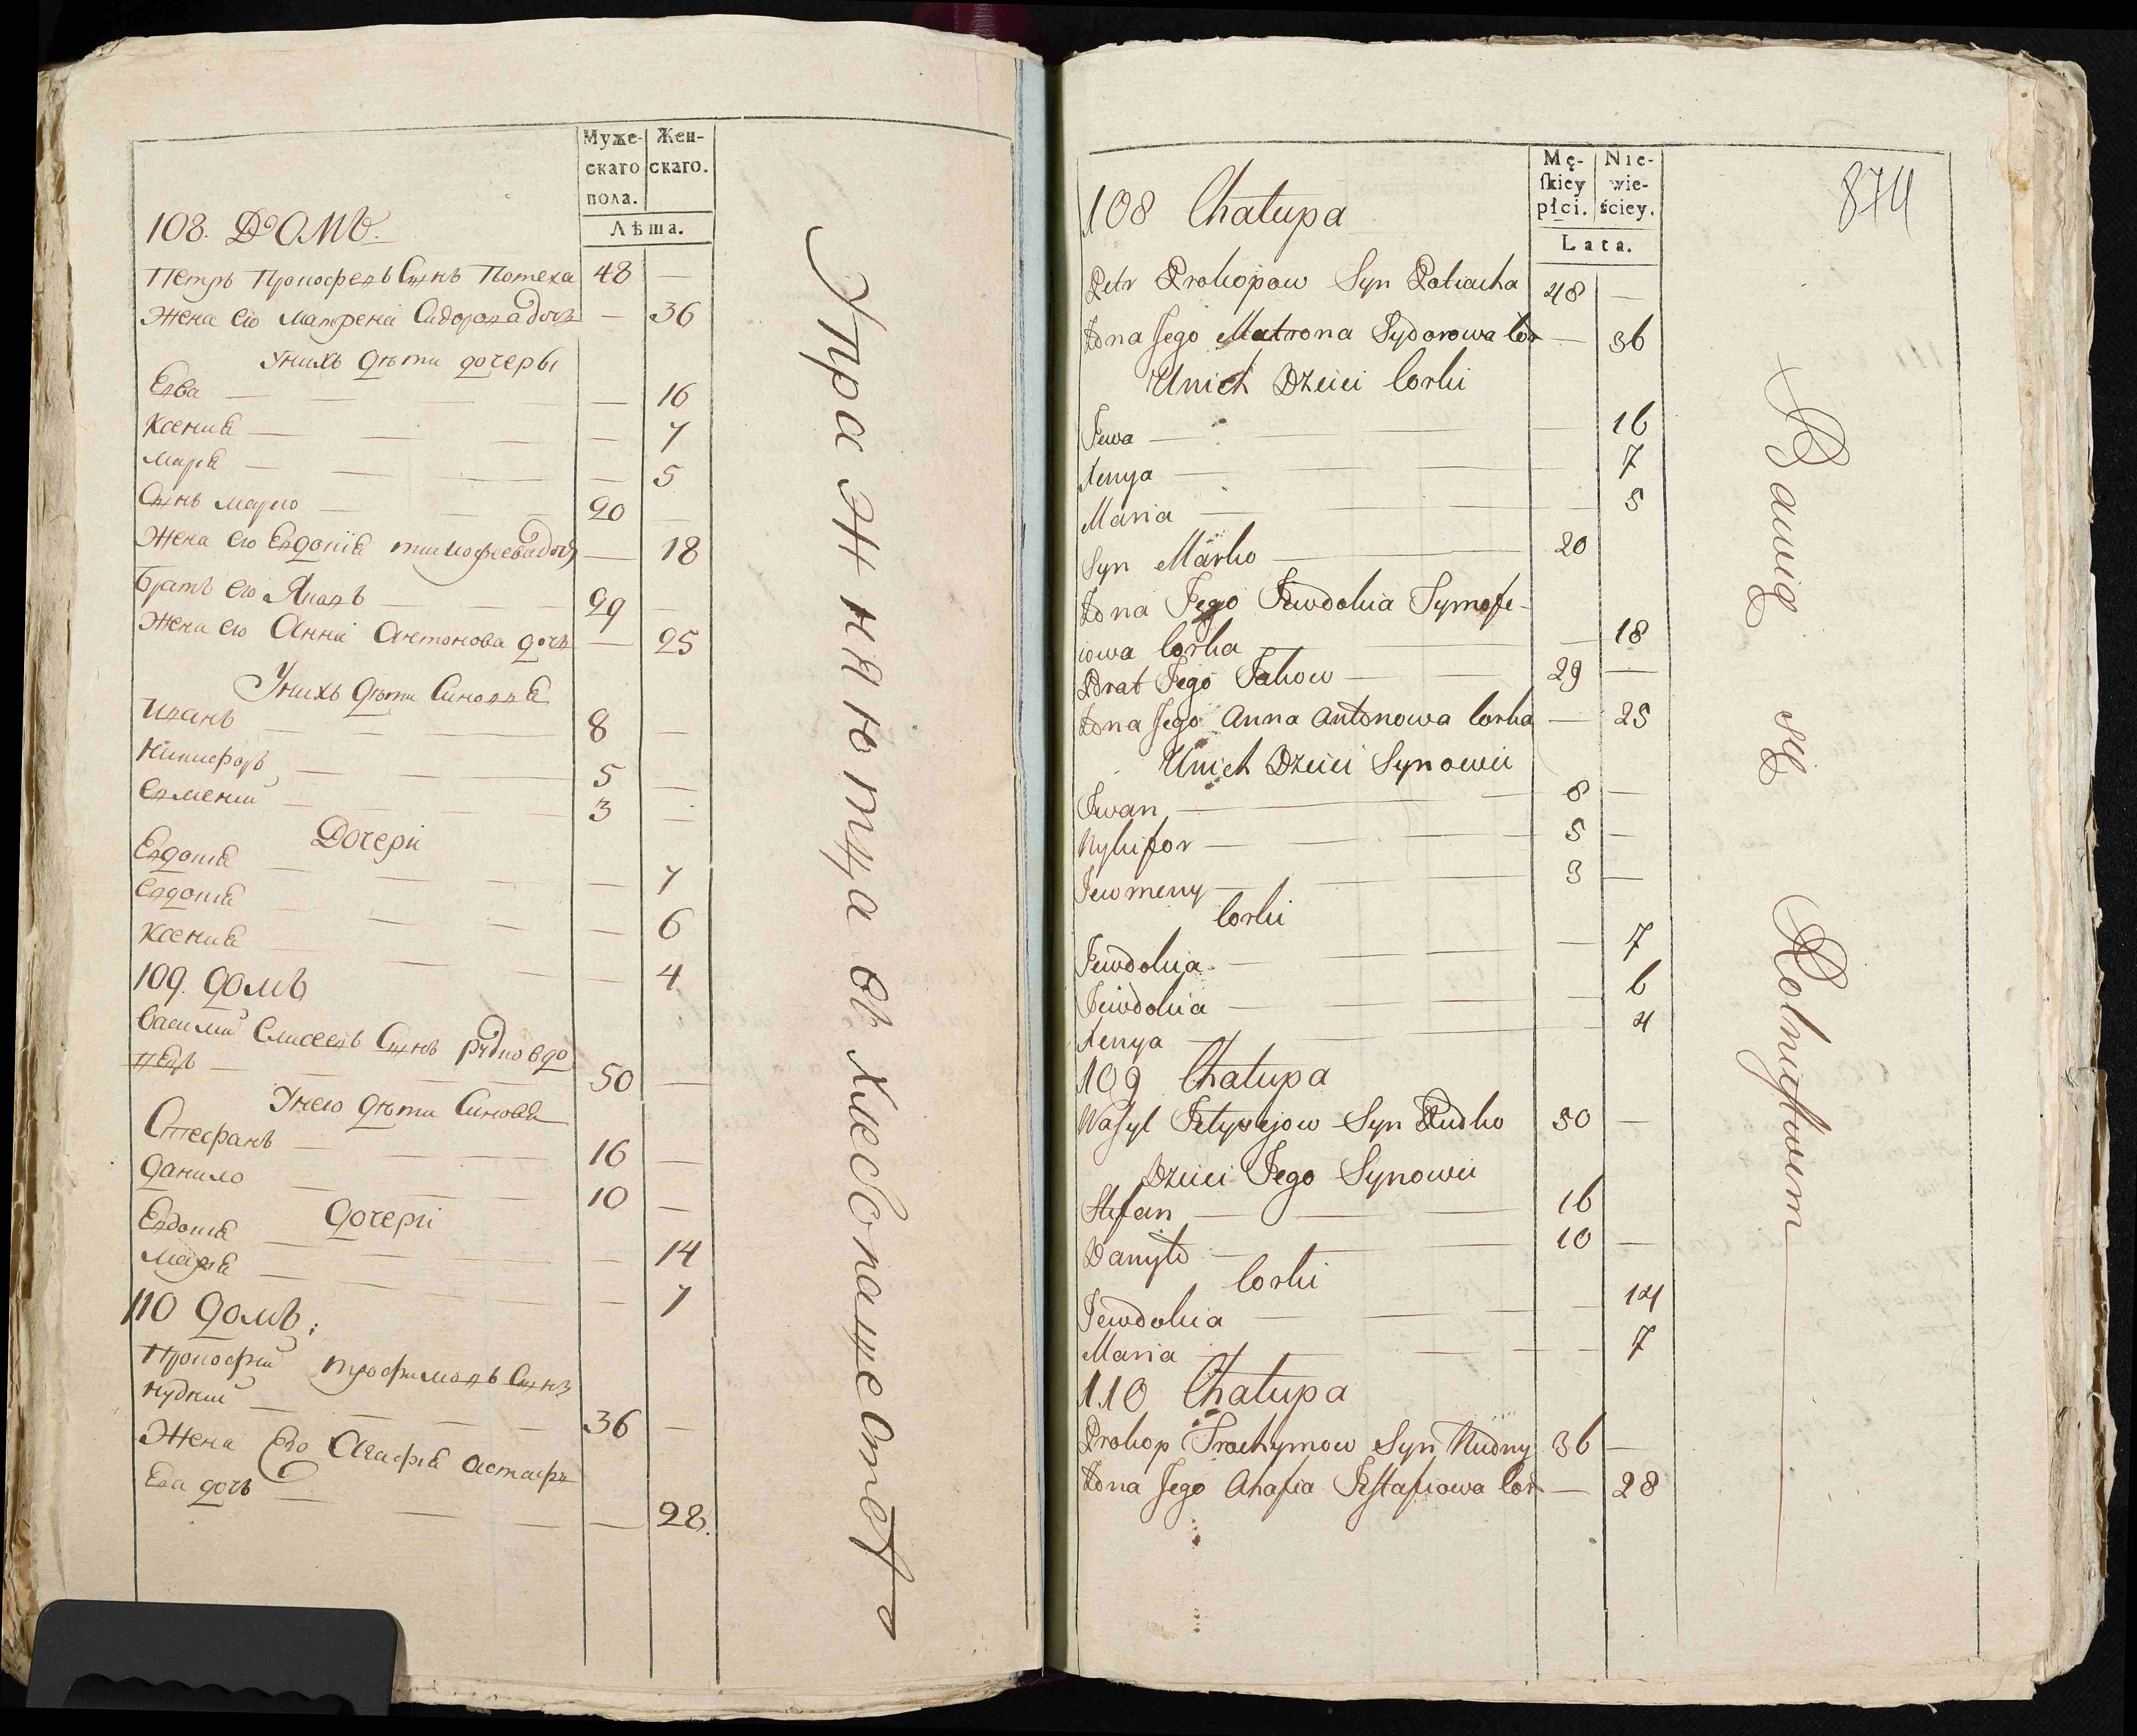 Муже-
скаго
пола.
Жен-
скаго.
Лѣта.
108. Домъ.
Петръ Прокофевъ Сынъ Потеха 48 —
Жена его Матрена Сидорова дочь — 36
Унихъ дѣти дочеры
Евва — — 16
Ксения — — 7
Мария — — 5
Сынъ Марко — 20 —
Жена его Евдокїя тимофеева дочь — 18
Братъ его Яковъ — 29 —
Жена его Анна Антонова дочь — 25
Унихъ дѣти Синовья
Иванъ — 8 —
Никифоръ — 5 —
Евмений — 3 —
Дочери
Евдокия — — 7
Евдокия — — 6
Ксения — — 4
109. домъ
Василий Елисеевъ Сынъ рудко вдо
вецъ — 50 —
Унего дѣти Синовья
Стефанъ — 16 —
Данило — 10 —
дочери
Евдокия — — 14
Мария — — 7
110 домъ:
Прокофий трофимовъ Сынъ
нудний — 36 —
Жена Его Агафия астафь
Ева дочь — — 28.
Упражняются въ хлебопашестве
874
Mę-
skiey
płci.
Nie-
wie-
ściey.
Lata.
108 Chałupa
Petr Prokopow Syn Potiacha 48 —
Żona Jego Matrona Sydorowa Cor — 36
Unich Dzieci Corki
Jewa — — 16
Xenya — — 7
Maria — — 5
Syn Marko — 20
Żona Jego Jewdokia Tymofe-
iowa Corka — — 18
Brat Jego Jakow — 29 —
Żona Jego Anna Antonowa Corka — 25
Unich Dzieci Synowii
Iwan — 8 —
Nykifor — 5 —
Jewmeny — 3 —
Corki
Jewdokija — — 7
Jewdokia — — 6
Xenya — — 4
109 Chałupa
Wasyl Jełysejow Syn Rudko 50 —
Dzieci Jego Synowii
Stefan — 16
Danyło — 10 —
Corki
Jewdokia — — 14
Maria — — 7
110 Chałupa
Prokop Trochymow Syn Nudny 36 —
Żona Jego Ahafia Jestafiowa Cor — 28
Bawią się Rolnictwem